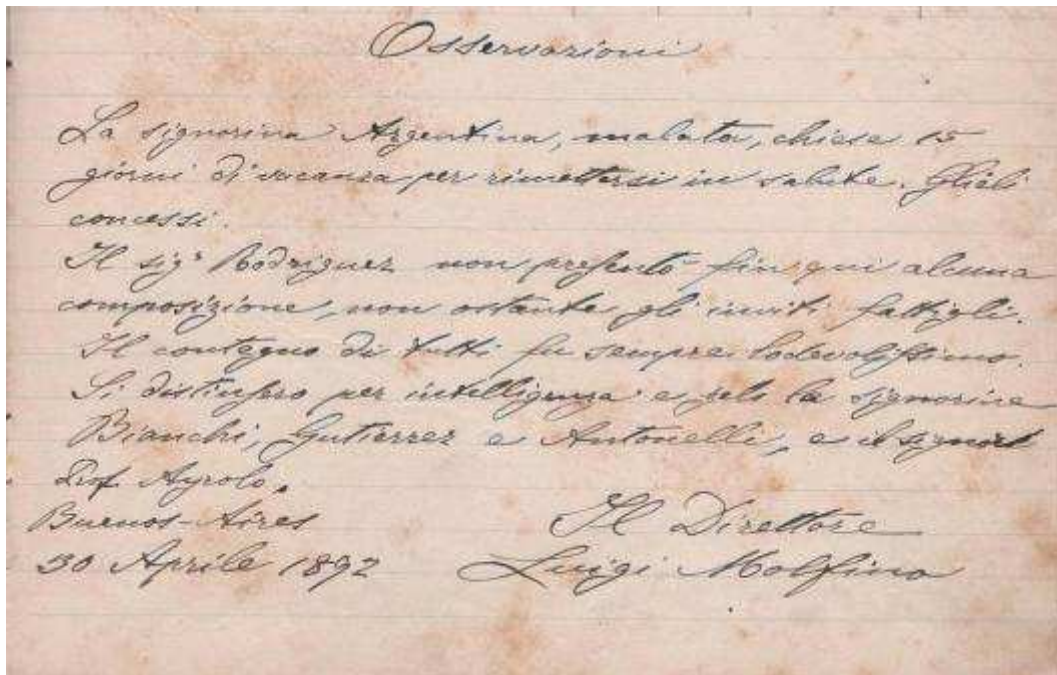 Osservazioni
La signorina Argentina, malata, chiese 15
giorni di vacanza per rimettersi in salute. Glieli
concessi.
Il sigr Rodriguez non presentò fin qui alcuna
composizione, non ostante gli inviti fattigli.
Il contegno di tutti fu sempre lodevolissimo.
Si distinsero per intelligenza e zelo le signorine
Bianchi, Gutierrez e Antonelli, e il signor
Prof Ayrolo.
Buenos-Aires
Il Direttore
30 Aprile 1892
Luigi Molfino